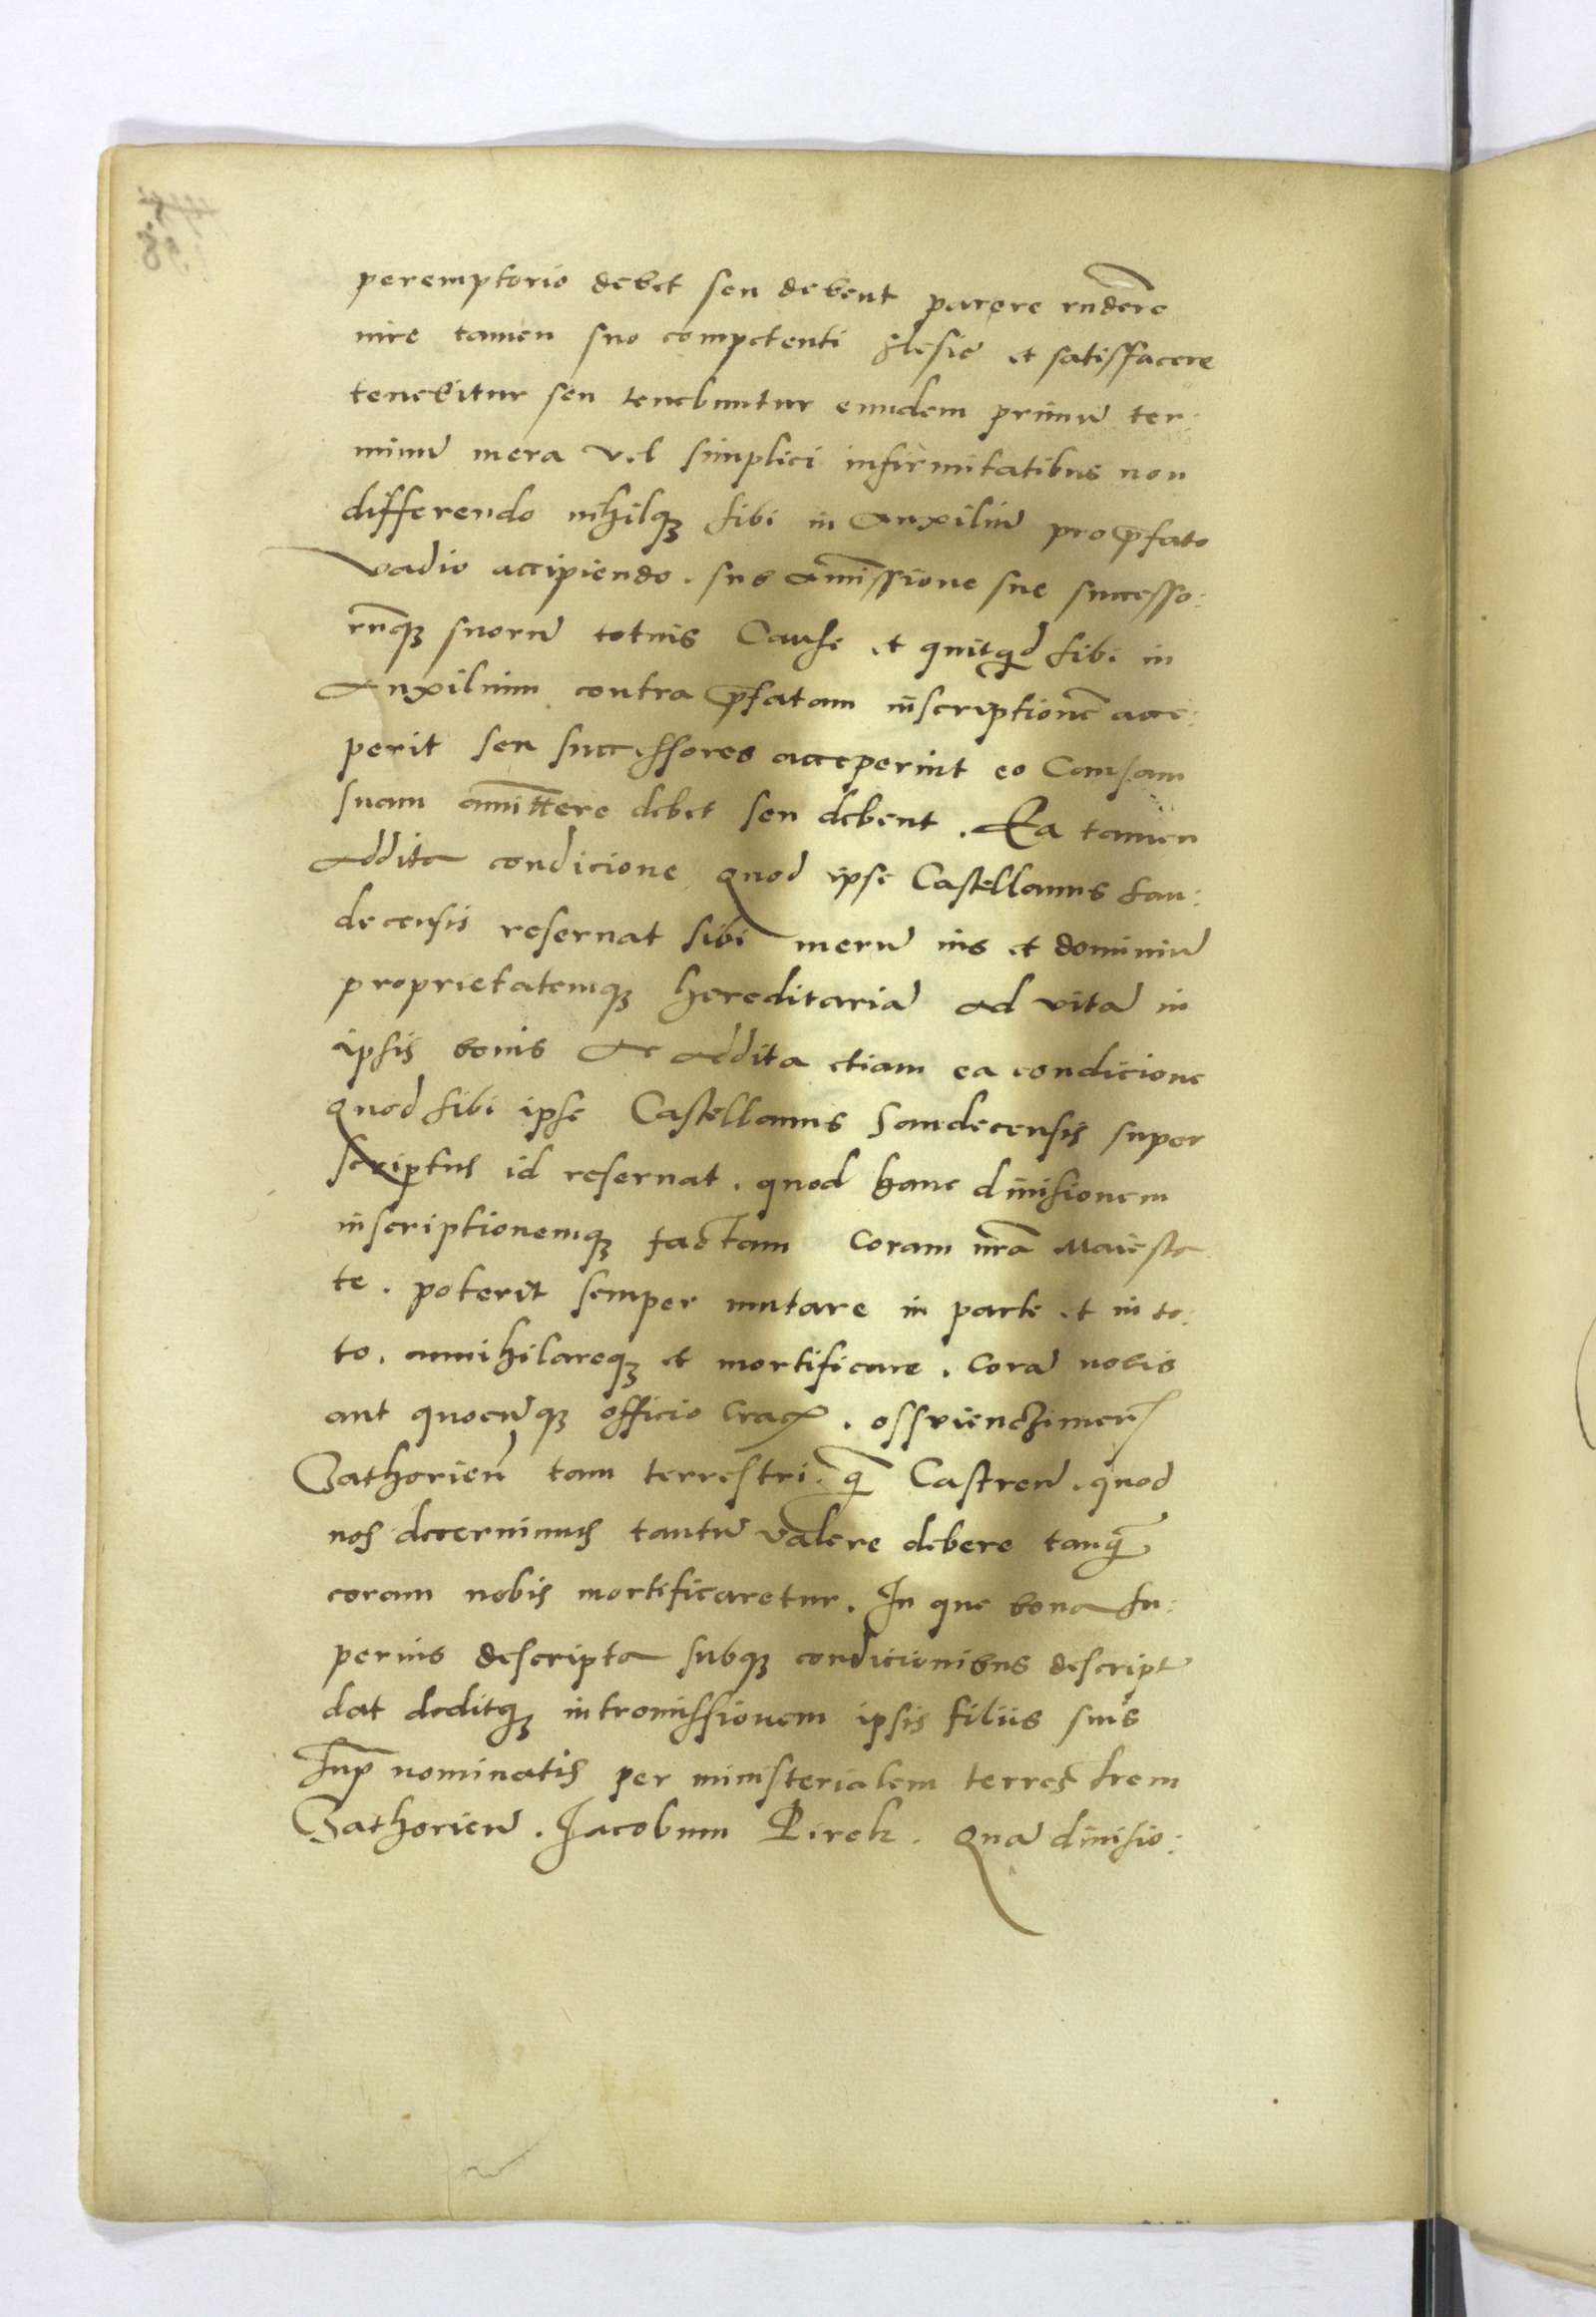 peremptorio debet seu debent parere rndere
iure tamen suo competenti et satisfacere
tenebitur seu tenebuntur eundem primu ter:
minu mera vel simplici infirmitatibus non
differendo nihilq sibi in Auxiliu pro pfato
vadio accipiendo. sub amissione sue successo:
ruq suoru totius Cause et quitqd sibi in
Auxilium contra pfatam inscriptione acce:
perit seu successores acceperint eo Causam
suam amittere debet seu debent. Ea tamen
Addita condicione quod ipse Castellanus San:
decensis reservat sibi meru ius et dominiu
proprietatemq hereditaria ad vita in
ipsis bonis Ac Addita etiam ea condicione
quod sibi ipse Castellanus Sandecensis super
scriptus id reservat. quod hanc divisionem
inscriptionemq factam Coram nra Maiesta
te. poterit semper mutare in parte et in to:
to. annihilareq et mortificare. Cora nobis
aut quocuq officio Crac. osswienczimen
Zathorien tam terrestri. q Castren. quod
nos decernimus tantu valere debere tanq
coram nobis mortificaretur. In que bona su:
perius descripta subq condicionibus descript
dat deditq intromissionem ipsis filiis suis
sup nominatis per ministerialem terrestrem
Zathorien. Jacobum Pirek. Qua divisio: